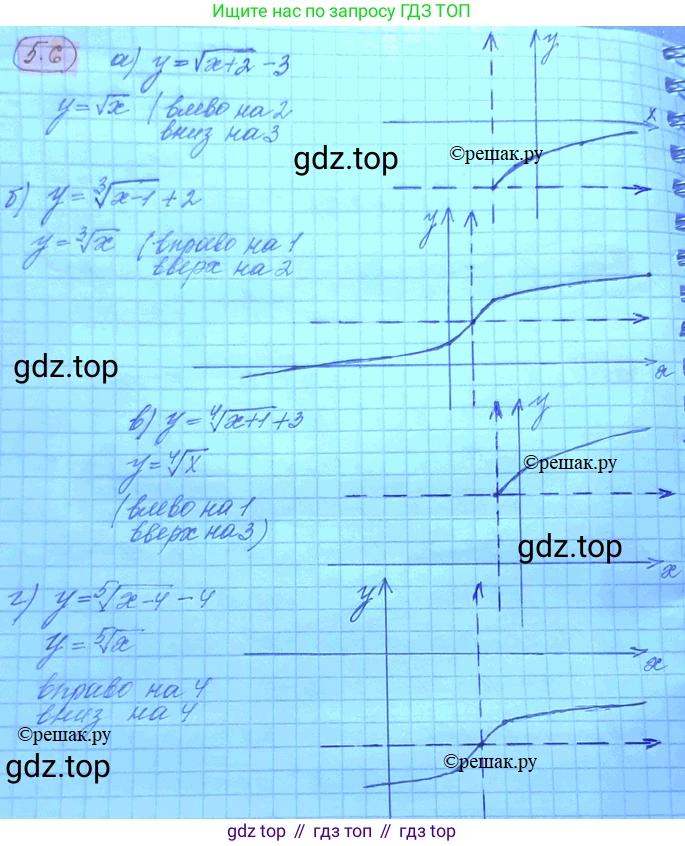 Ищите нас по запросу ГДЗ ТОП
5.6
а) y = √x+2 - 3
y = √x (влево на 2
вниз на 3
y
x
gdz.top
©решак.ру
б) y = ³√x-1 + 2
y = ³√x (вправо на 1
вверх на 2
y
x
gdz.top
в) y = ⁴√x+1 + 3
y = ⁴√x
(влево на 1
вверх на 3)
y
x
©решак.ру
gdz.top
г) y = ⁵√x-4 - 4
y = ⁵√x
вправо на 4
вниз на 4
y
x
©решак.ру
©решак.ру
gdz.top
gdz top // гдз топ // gdz top